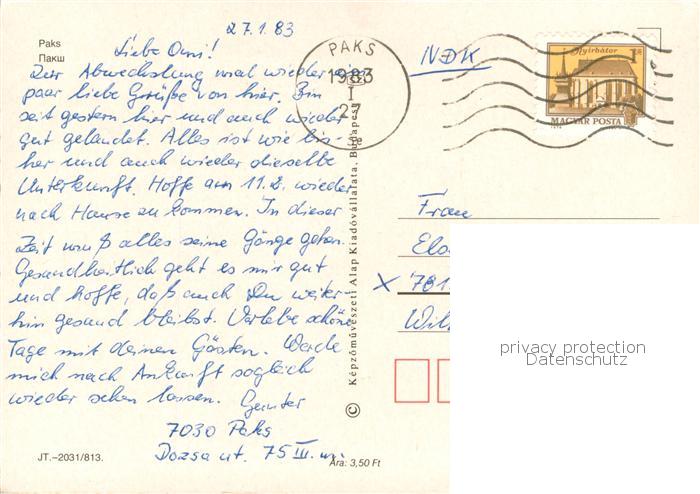 27.1.83
Paks
Пакш
Liebe Omi!
Zur Abwechslung mal wieder ein
paar liebe Grüße von hier. Bin
seit gestern hier und auch wieder
gut gelandet. Alles ist wie bis-
her und auch wieder dieselbe
Unterkunft. Hoffe am 11.2. wieder
nach Hause zu kommen. In dieser
Zeit muß alles seine Gänge gehen.
Gesundheitlich geht es mir gut
und hoffe, daß auch Du weiter-
hin gesund bleibst. Verlebe schöne
Tage mit deinen Gästen. Werde
mich nach Ankunft sogleich
wieder sehen lassen. Gunter
7030 Paks
Dozsa ut. 75 III.
JT.–2031/813.
Ára: 3,50 Ft
© Képzőművészeti Alap Kiadóvállalata, Budapest
PAKS
1983
I
27
NDK
Nyírbátor
1 Ft
MAGYAR POSTA
Frau
X 781
privacy protection
Datenschutz